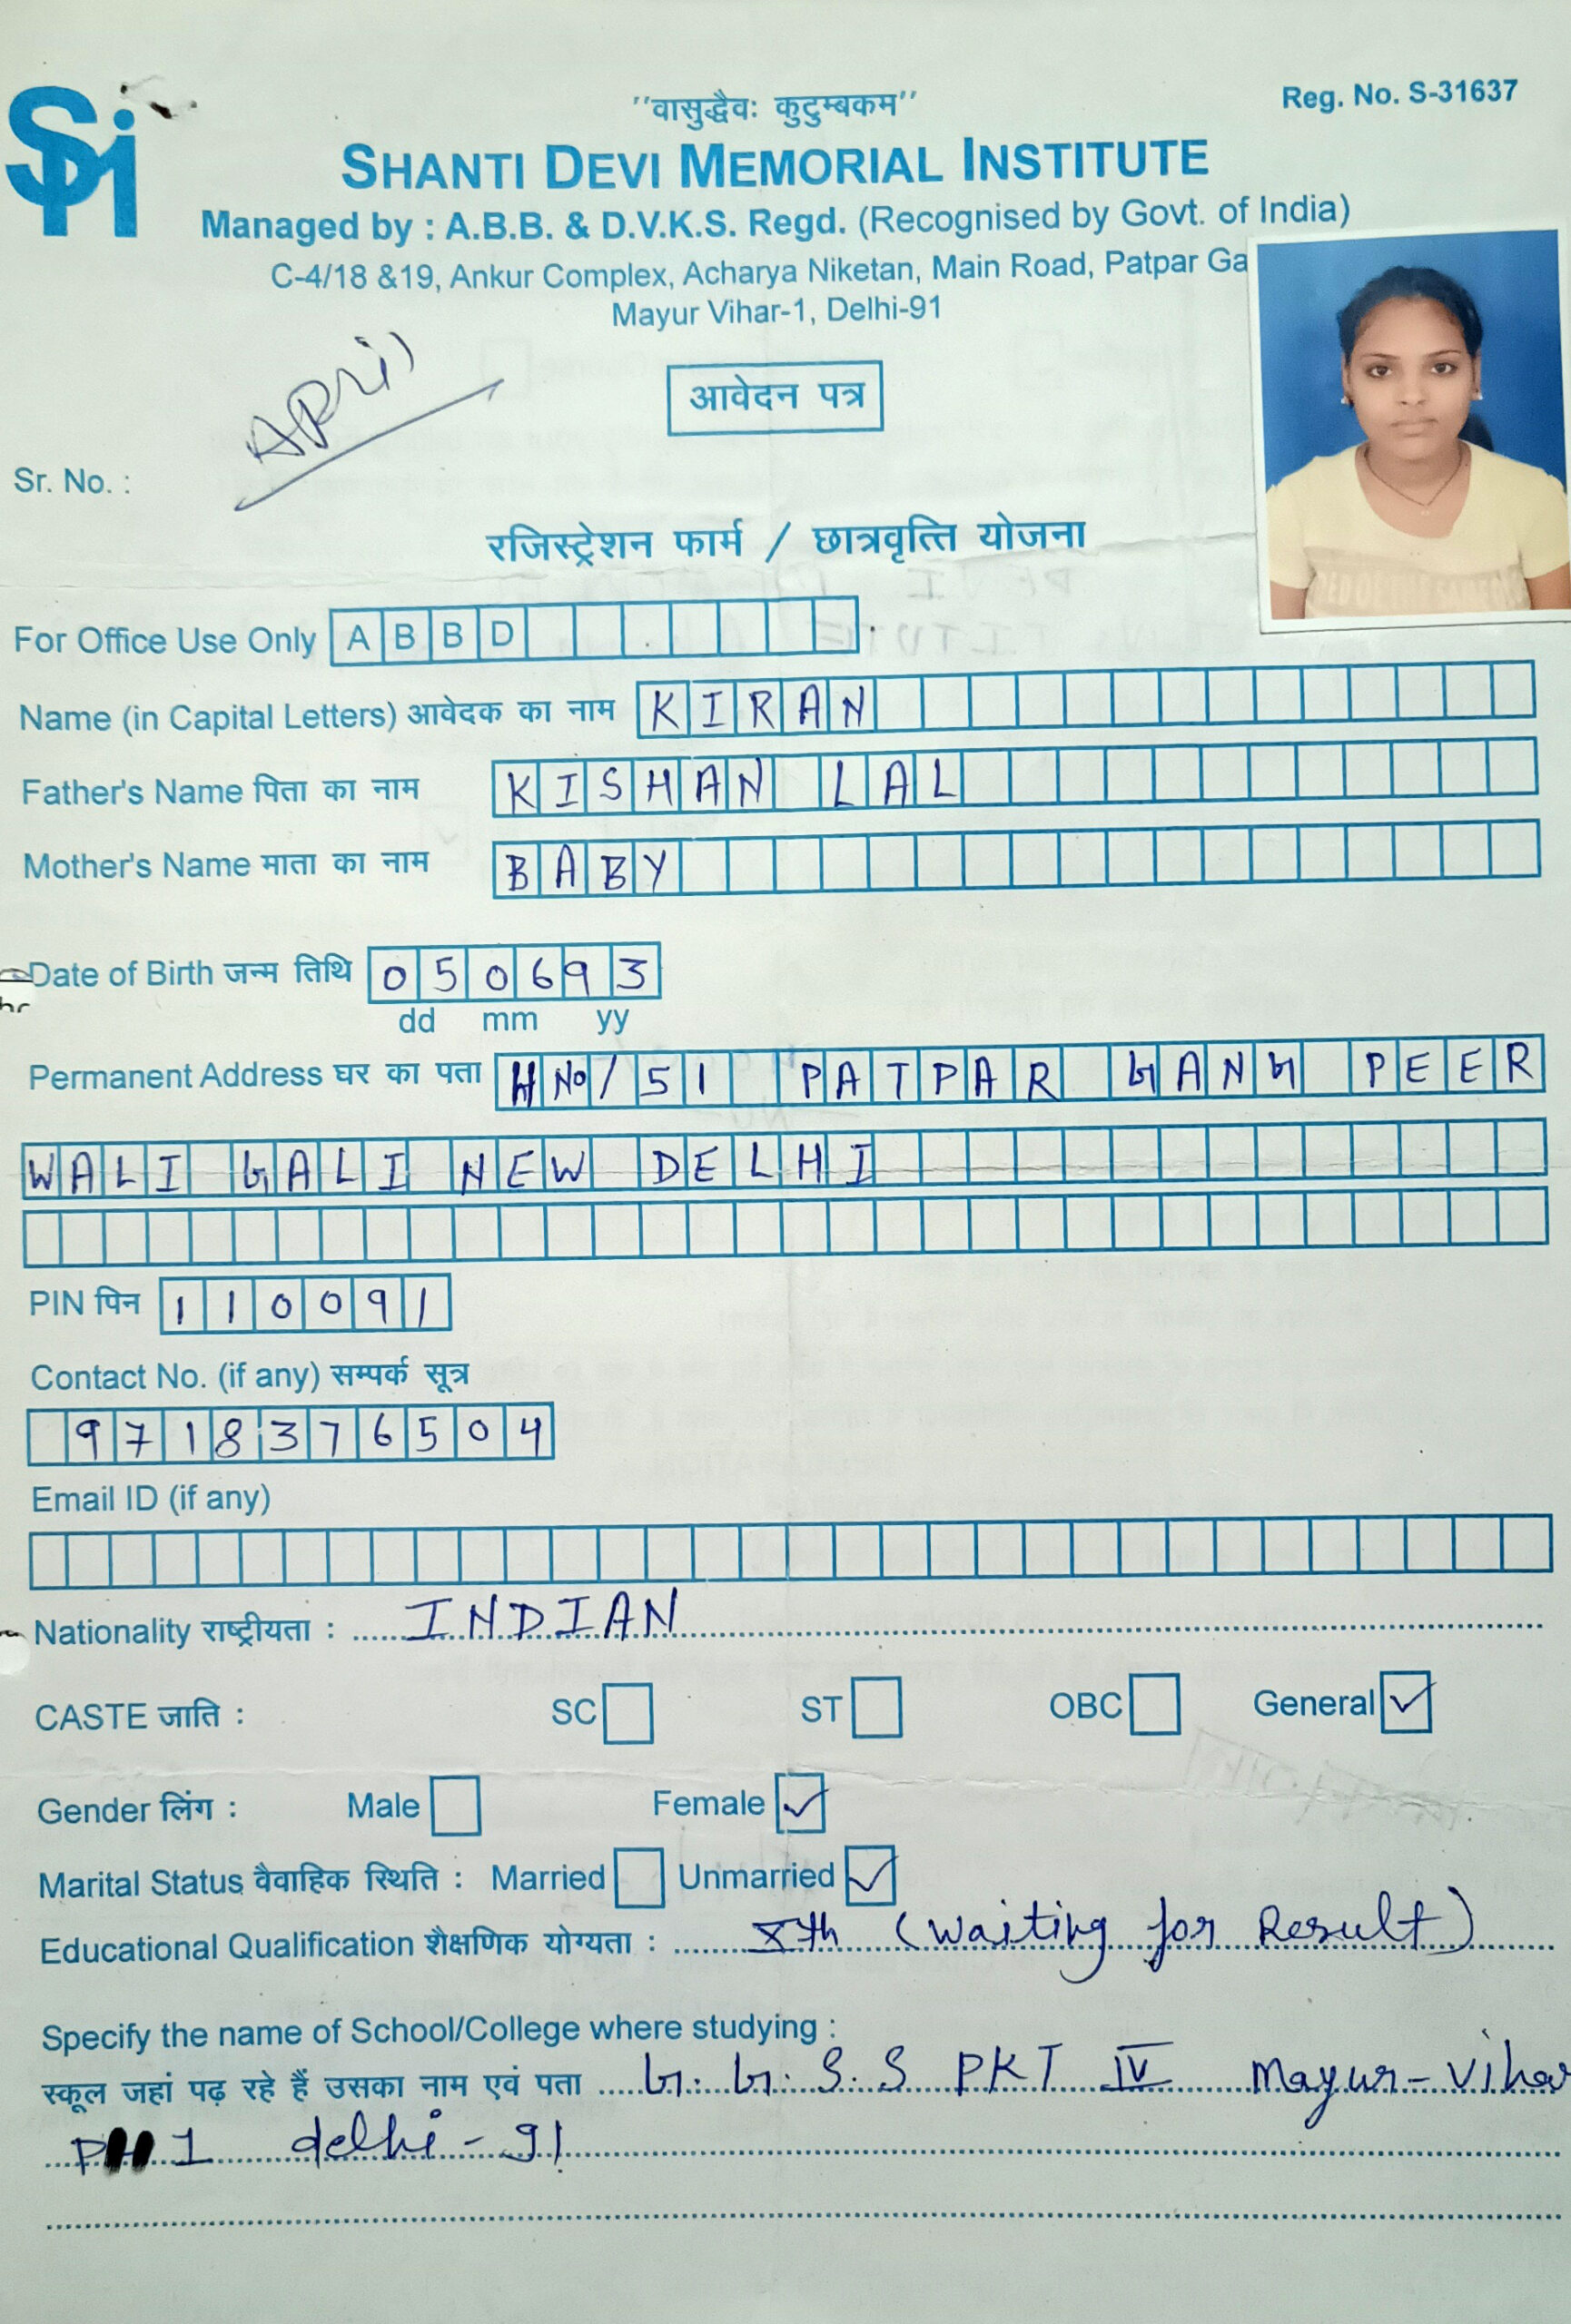 SDMi
"वासुद्धैवः कुटुम्बकम"
Reg. No. S-31637
SHANTI DEVI MEMORIAL INSTITUTE
Managed by : A.B.B. & D.V.K.S. Regd. (Recognised by Govt. of India)
C-4/18 &19, Ankur Complex, Acharya Niketan, Main Road, Patpar Ga
Mayur Vihar-1, Delhi-91
APril
आवेदन पत्र
Sr. No. :
रजिस्ट्रेशन फार्म / छात्रवृत्ति योजना
For Office Use Only ABBD
Name (in Capital Letters) आवेदक का नाम KIRAN
Father's Name पिता का नाम KISHAN LAL
Mother's Name माता का नाम BABY
Date of Birth जन्म तिथि 050693
dd mm yy
Permanent Address घर का पता HNo/51 PATPAR GANG PEER
WALI GALI NEW DELHI
PIN पिन 110091
Contact No. (if any) सम्पर्क सूत्र
9718376504
Email ID (if any)
Nationality राष्ट्रीयता : INDIAN
CASTE जाति : SC ST OBC General ✓
Gender लिंग : Male Female ✓
Marital Status वैवाहिक स्थिति : Married Unmarried ✓
Educational Qualification शैक्षणिक योग्यता : Xth (Waiting for Result)
Specify the name of School/College where studying :
स्कूल जहां पढ़ रहे हैं उसका नाम एवं पता G. G. S. S PKT IV Mayur-Vihar
PH 1 delhi-91